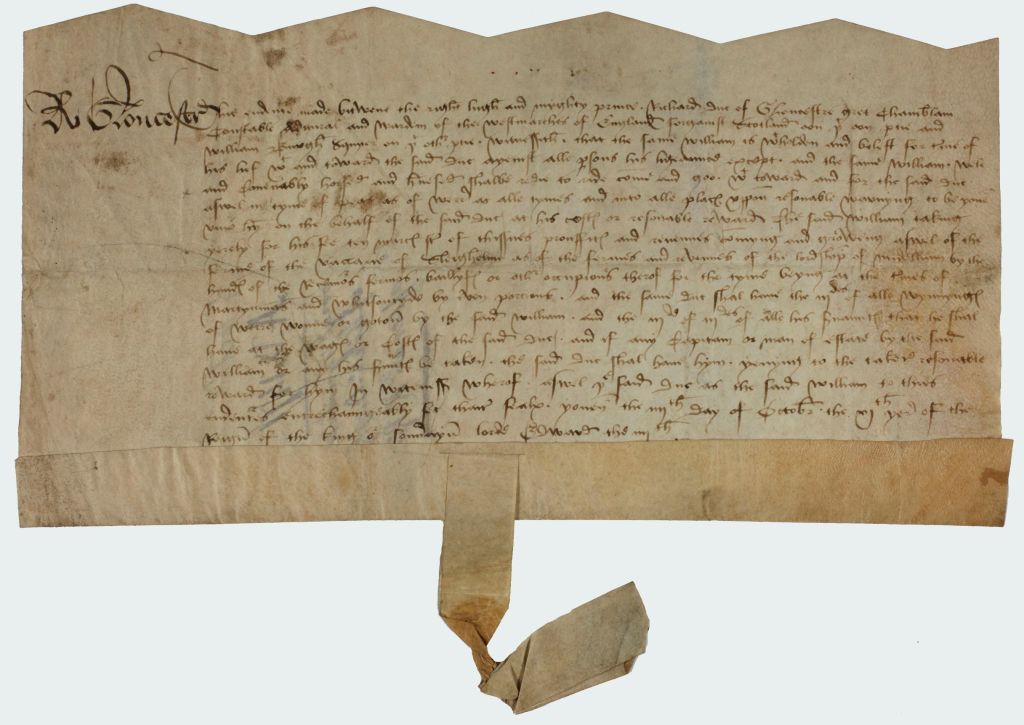 R Gloucestre
This endenture made bitwene the right high and myghty prince Richard duc of Gloucestre gret Chamberlain
Constable Admiral and Wardein of the Westmarches of England foragainst Scotland on yᵉ oon ptie and
William Squier on yᵉ othr ptie Witnesseth that the same William is wᵗholden and belest for terme of
his lief wᵗ and toward the said duc ayenst alle psons his ligeaunce except and the same William Wele
and horsed and shalbe redie to ride come and goo wᵗ toward and for the said duc
aswel in tyme of peas as of Werr at alle tymes and into alle placs upon resonable Warnyng to be yove
unto hym on the behalf of the said duc at his costs or resonable reward the said William taking
yerely for his fee ten marcs of thissues prouffits and revenues comyng and growing aswel of the
ferme of the vaccarie of as of the fermes and revenues of the lordship of Middelham by the
hands of the Receivours fermors baillyfs or othr occupiours therof for the tyme being at the tmes of
Martynmas and Whitsontyde by even porcions and the same duc shal have the iiiᵈᵉ of alle Wynnyngs
of Werre Wonne or goten by the said William and the iiiᵈᵉ of iiiᵈᵉˢ of alle his that he shal
have at the Wages or Costs of the said duc and if any Capitain or man of estate by the said
William or any his be taken the said duc shal have hym yeving to the taker resonable
reward for hym In Witness Wherof aswel yᵉ said duc as the said William to thies
endentures entrechaungeably set thair sealx yoven the iiiᵗʰ day of Octobr the xiᵗʰ yere of the
Reign of the king our souverayn lord Edward the iiiiᵗʰ